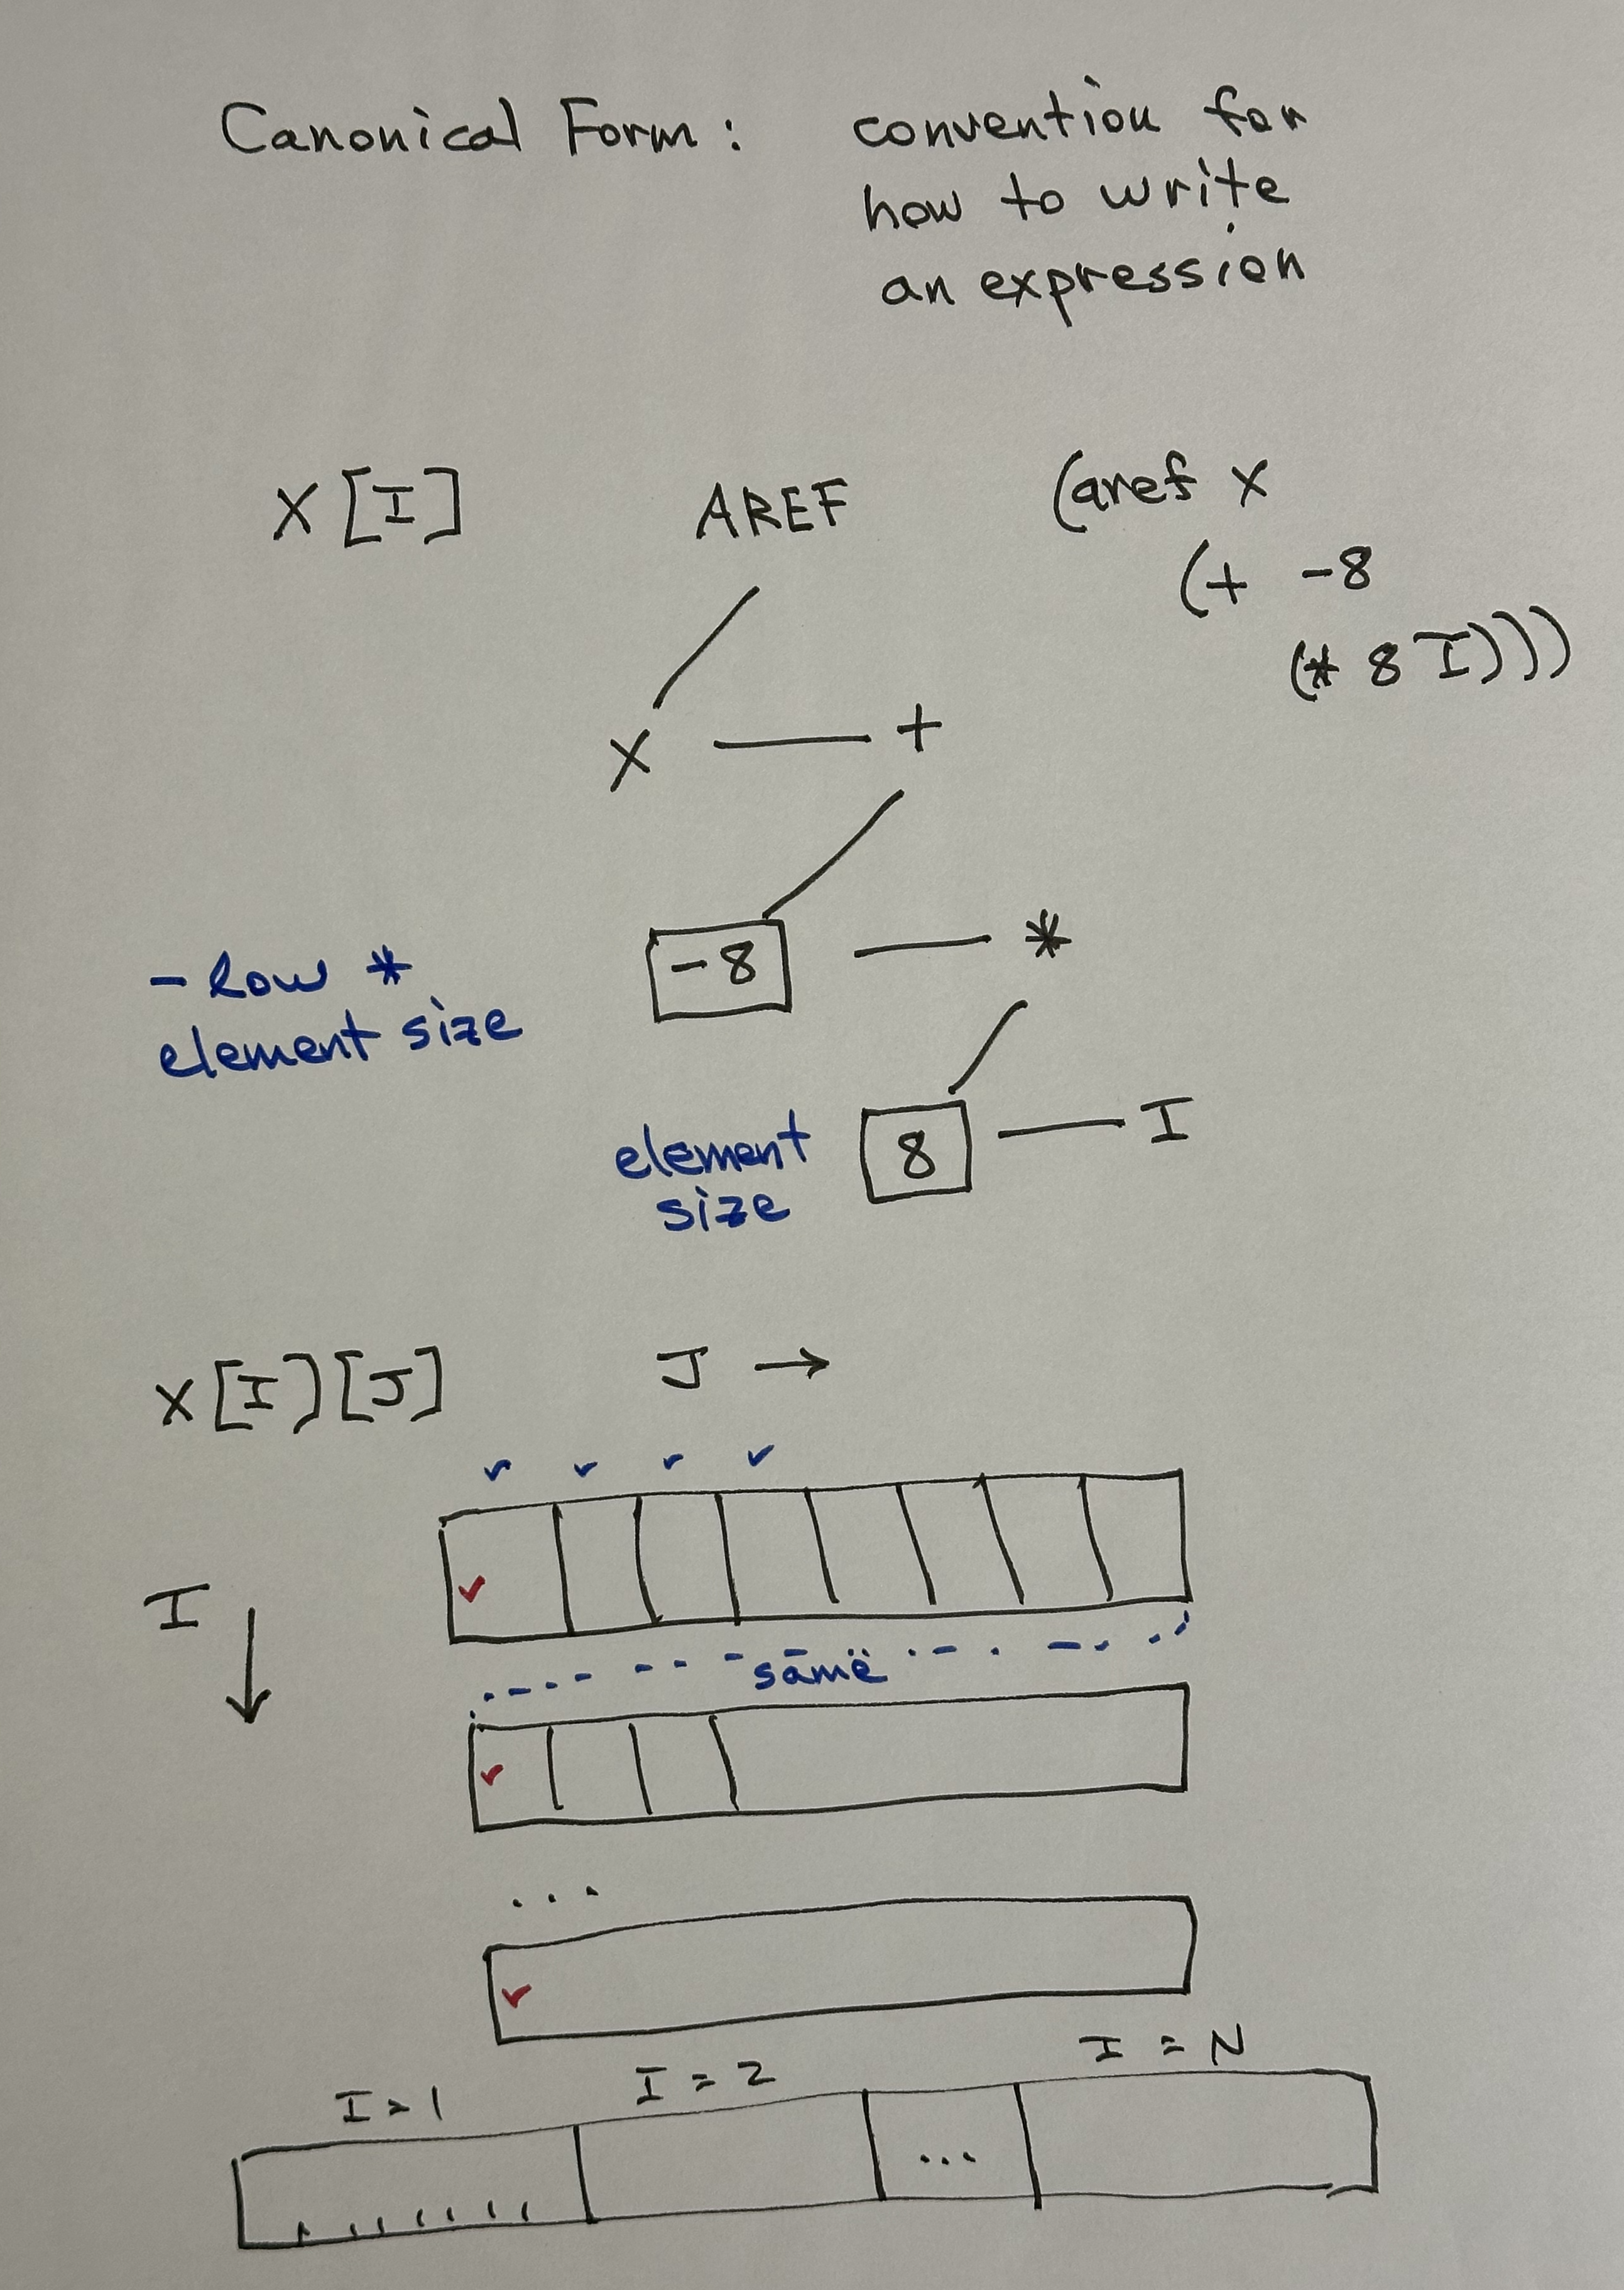 Canonical Form: convention for
how to write
an expression
X[I] AREF (aref x
(+ -8
(* 8 I)))
X +
-8 *
- low *
element size
8 I
element
size
X[I][J] J →
I ↓
same
...
I = 1 I = 2 I = N
...